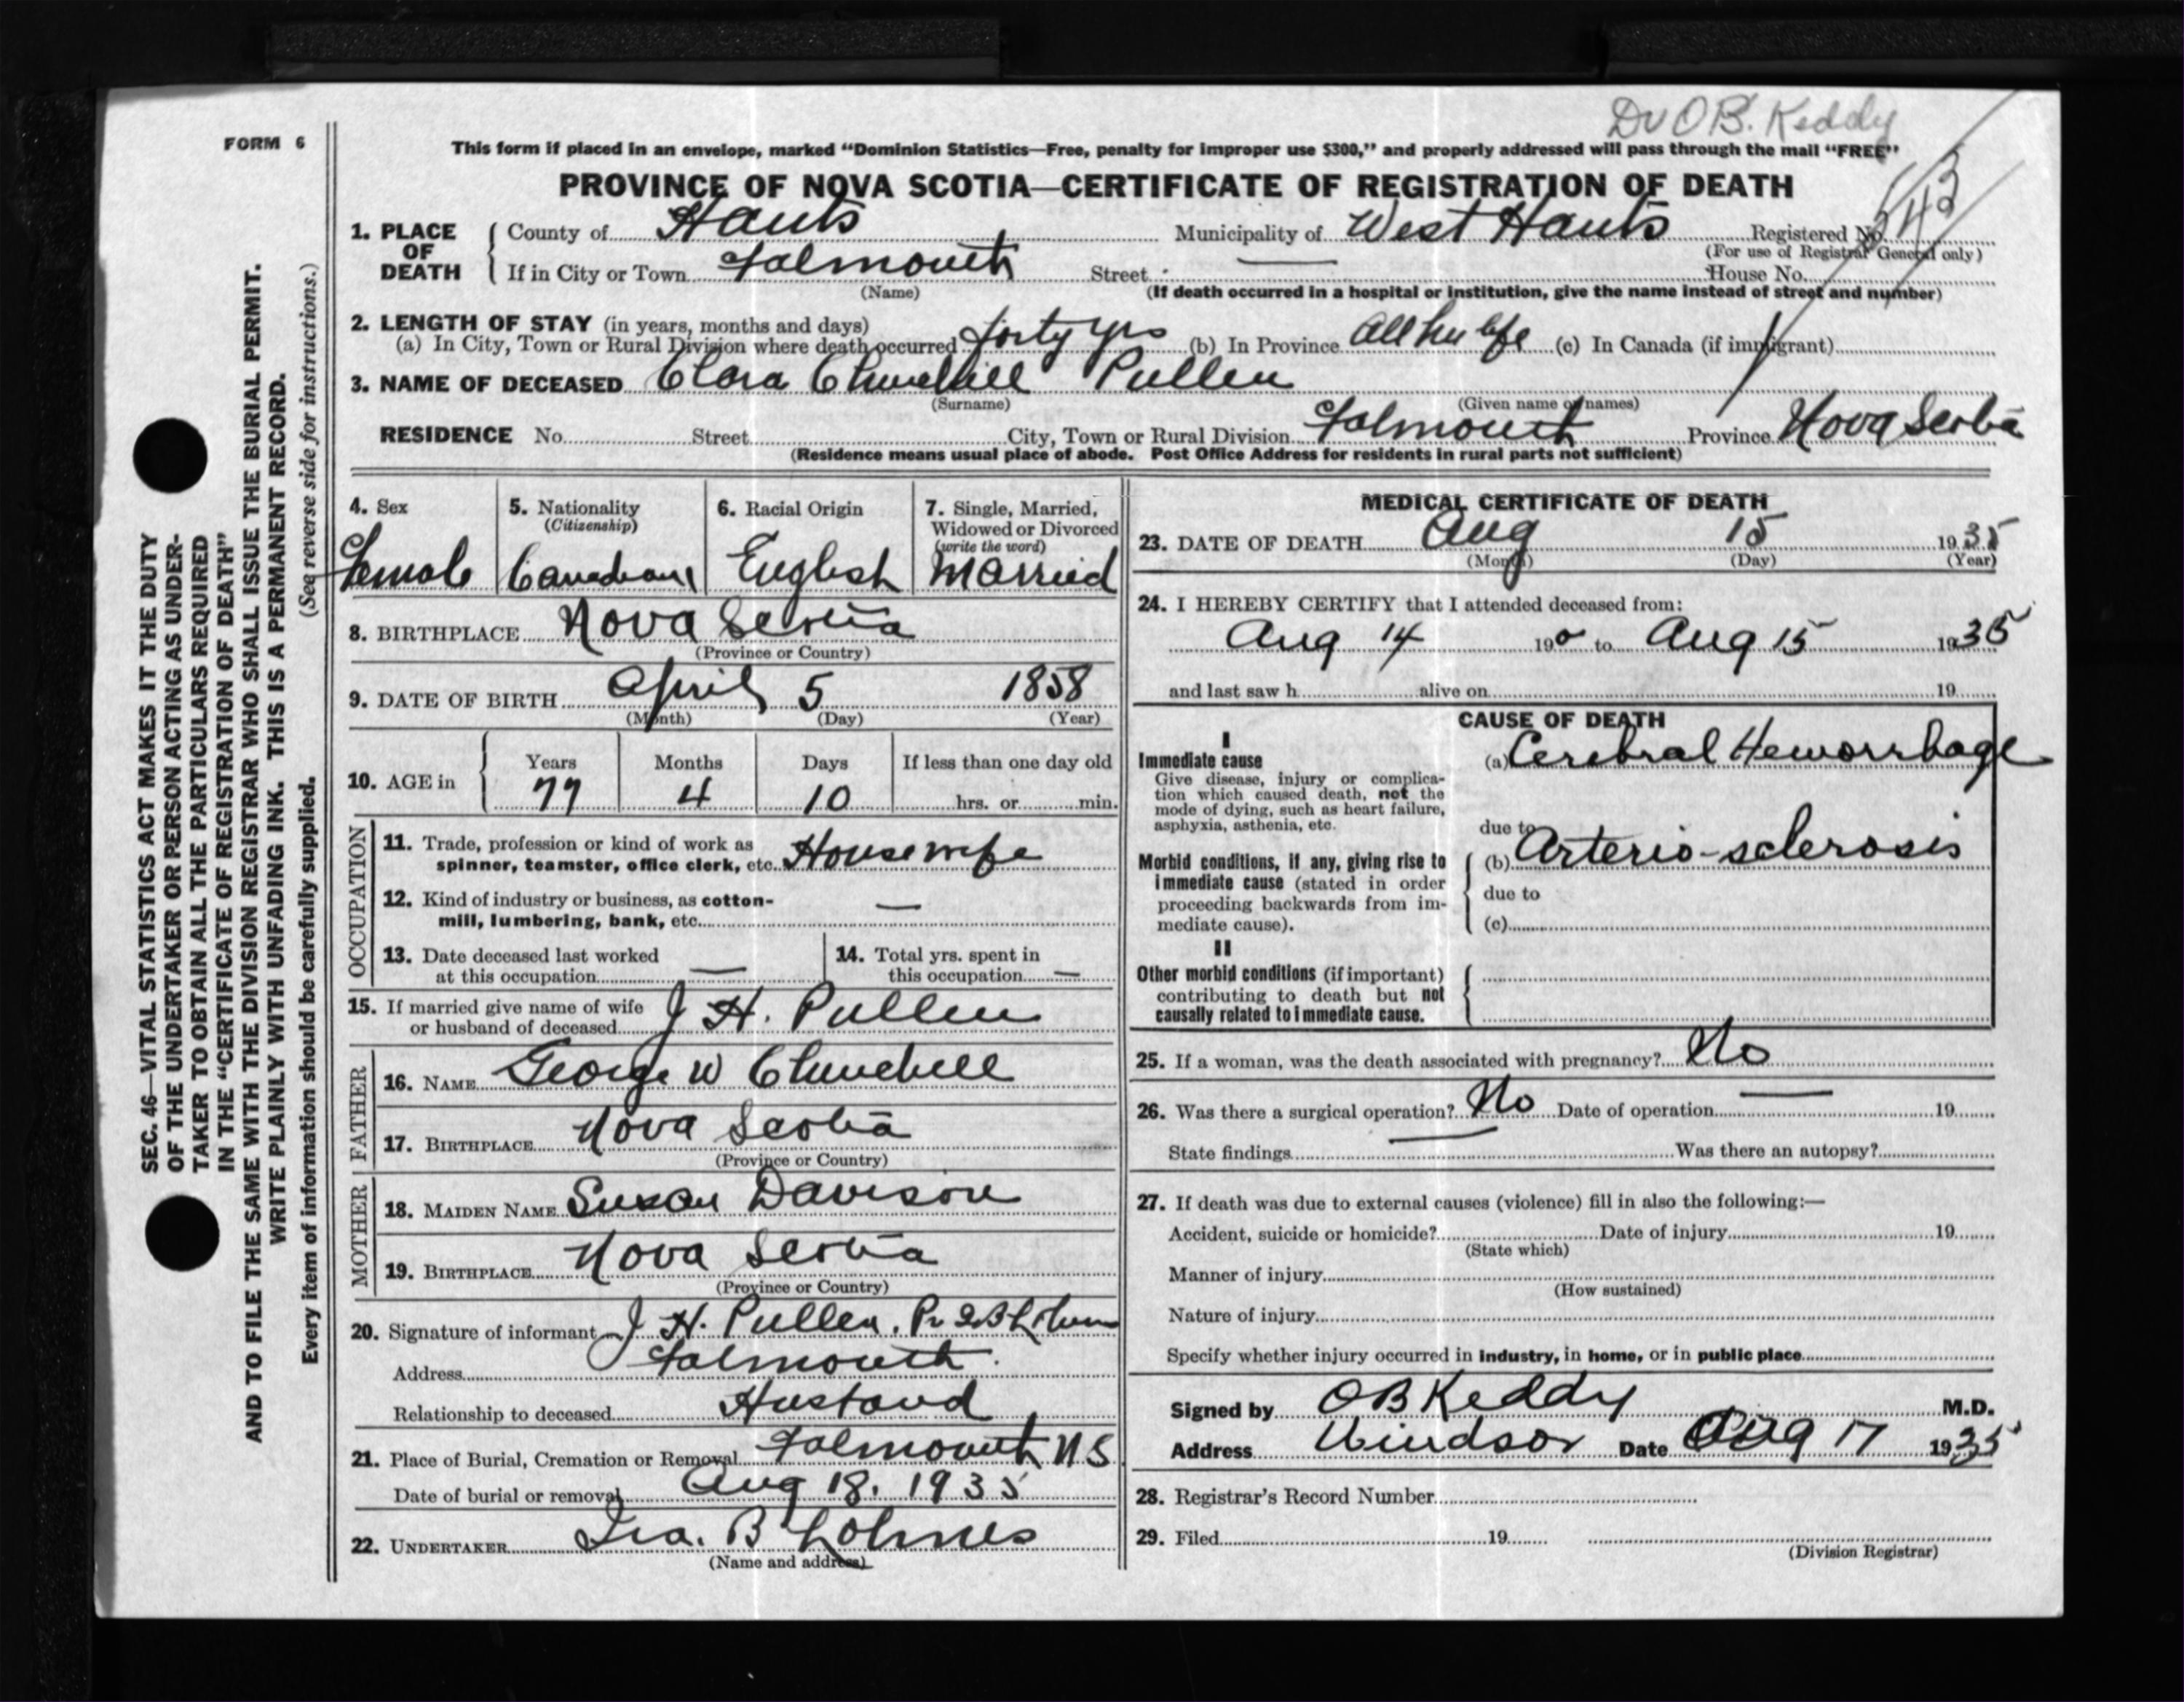 Dr OB. Keddy
FORM 6
This form if placed in an envelope, marked “Dominion Statistics—Free, penalty for improper use $300,” and properly addressed will pass through the mail “FREE”
PROVINCE OF NOVA SCOTIA—CERTIFICATE OF REGISTRATION OF DEATH
1. PLACE OF DEATH { County of Hants Municipality of West Hants Registered No. 543
(For use of Registrar General only)
If in City or Town Falmouth Street — House No.
(Name) (If death occurred in a hospital or institution, give the name instead of street and number)
2. LENGTH OF STAY (in years, months and days)
(a) In City, Town or Rural Division where death occurred forty yrs (b) In Province all her life (c) In Canada (if immigrant)
3. NAME OF DECEASED Clara Churchill Pullen
(Surname) (Given name or names)
RESIDENCE No. Street City, Town or Rural Division Falmouth Province Nova Scotia
(Residence means usual place of abode. Post Office Address for residents in rural parts not sufficient)
4. Sex 5. Nationality 6. Racial Origin 7. Single, Married,
(Citizenship) Widowed or Divorced
(write the word)
Female Canadian English Married
8. BIRTHPLACE Nova Scotia
(Province or Country)
9. DATE OF BIRTH April 5 1858
(Month) (Day) (Year)
Years Months Days If less than one day old
10. AGE in { 77 4 10 hrs. or min.
OCCUPATION
11. Trade, profession or kind of work as
spinner, teamster, office clerk, etc. Housewife
12. Kind of industry or business, as cotton-
mill, lumbering, bank, etc. —
13. Date deceased last worked 14. Total yrs. spent in
at this occupation — this occupation —
15. If married give name of wife
or husband of deceased J H. Pullen
FATHER
16. NAME George W Churchill
17. BIRTHPLACE Nova Scotia
(Province or Country)
MOTHER
18. MAIDEN NAME Susan Davison
19. BIRTHPLACE Nova Scotia
(Province or Country)
20. Signature of informant J H. Pullen.
Address Falmouth.
Relationship to deceased Husband
21. Place of Burial, Cremation or Removal Falmouth N S
Date of burial or removal Aug 18. 1935
22. UNDERTAKER Ira. B Lohnes
(Name and address)
MEDICAL CERTIFICATE OF DEATH
23. DATE OF DEATH Aug 15 1935
(Month) (Day) (Year)
24. I HEREBY CERTIFY that I attended deceased from:
Aug 14 19 to Aug 15 1935
and last saw h alive on 19
CAUSE OF DEATH
I
Immediate cause (a) Cerebral Hemorrhage
Give disease, injury or complica-
tion which caused death, not the
mode of dying, such as heart failure,
asphyxia, asthenia, etc.
due to
Morbid conditions, if any, giving rise to (b) Arterio-sclerosis
immediate cause (stated in order due to
proceeding backwards from im-
mediate cause). (c)
II
Other morbid conditions (if important)
contributing to death but not
causally related to immediate cause.
25. If a woman, was the death associated with pregnancy? No
26. Was there a surgical operation? No Date of operation — 19
State findings — Was there an autopsy?
27. If death was due to external causes (violence) fill in also the following:—
Accident, suicide or homicide? Date of injury 19
(State which)
Manner of injury
(How sustained)
Nature of injury
Specify whether injury occurred in industry, in home, or in public place
Signed by OB Keddy M.D.
Address Windsor Date Aug 17 1935
28. Registrar's Record Number
29. Filed 19
(Division Registrar)
SEC. 46—VITAL STATISTICS ACT MAKES IT THE DUTY
OF THE UNDERTAKER OR PERSON ACTING AS UNDER-
TAKER TO OBTAIN ALL THE PARTICULARS REQUIRED
IN THE “CERTIFICATE OF REGISTRATION OF DEATH”
AND TO FILE THE SAME WITH THE DIVISION REGISTRAR WHO SHALL ISSUE THE BURIAL PERMIT.
WRITE PLAINLY WITH UNFADING INK. THIS IS A PERMANENT RECORD.
Every item of information should be carefully supplied. (See reverse side for instructions.)